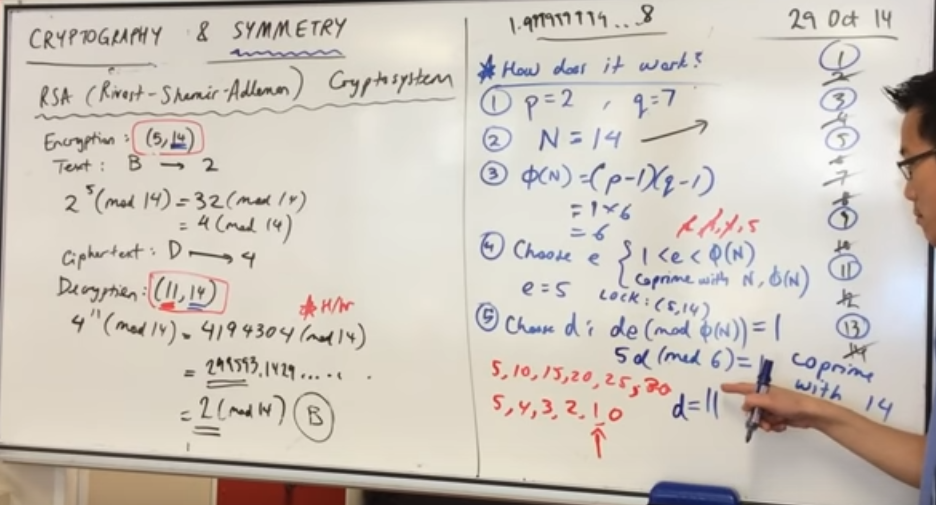 CRYPTOGRAPHY & SYMMETRY
RSA (Rivest-Shamir-Adleman) Cryptosystem
Encryption: (5,14)
Text: B → 2
2⁵(mod 14) = 32 (mod 14)
= 4 (mod 14)
Ciphertext: D → 4
Decryption: (11,14)
* H/W
4¹¹(mod 14) = 4194304 (mod 14)
= 299593.1429.....
= 2 (mod 14) B
1.999999994...8
* How does it work?
① p=2 , q=7
② N = 14 →
③ ϕ(N) = (p-1)(q-1)
= 1×6
= 6
④ Choose e { 1 < e < ϕ(N)
coprime with N, ϕ(N)
5
e = 5
Lock: (5,14)
⑤ Choose d: de (mod ϕ(N)) = 1
5d (mod 6) = 1
5, 10, 15, 20, 25, 30
5, 4, 3, 2, 1, 0
d = 11
29 Oct 14
1
2
3
4
5
6
7
8
9
10
11
12
13
14
coprime
with 14